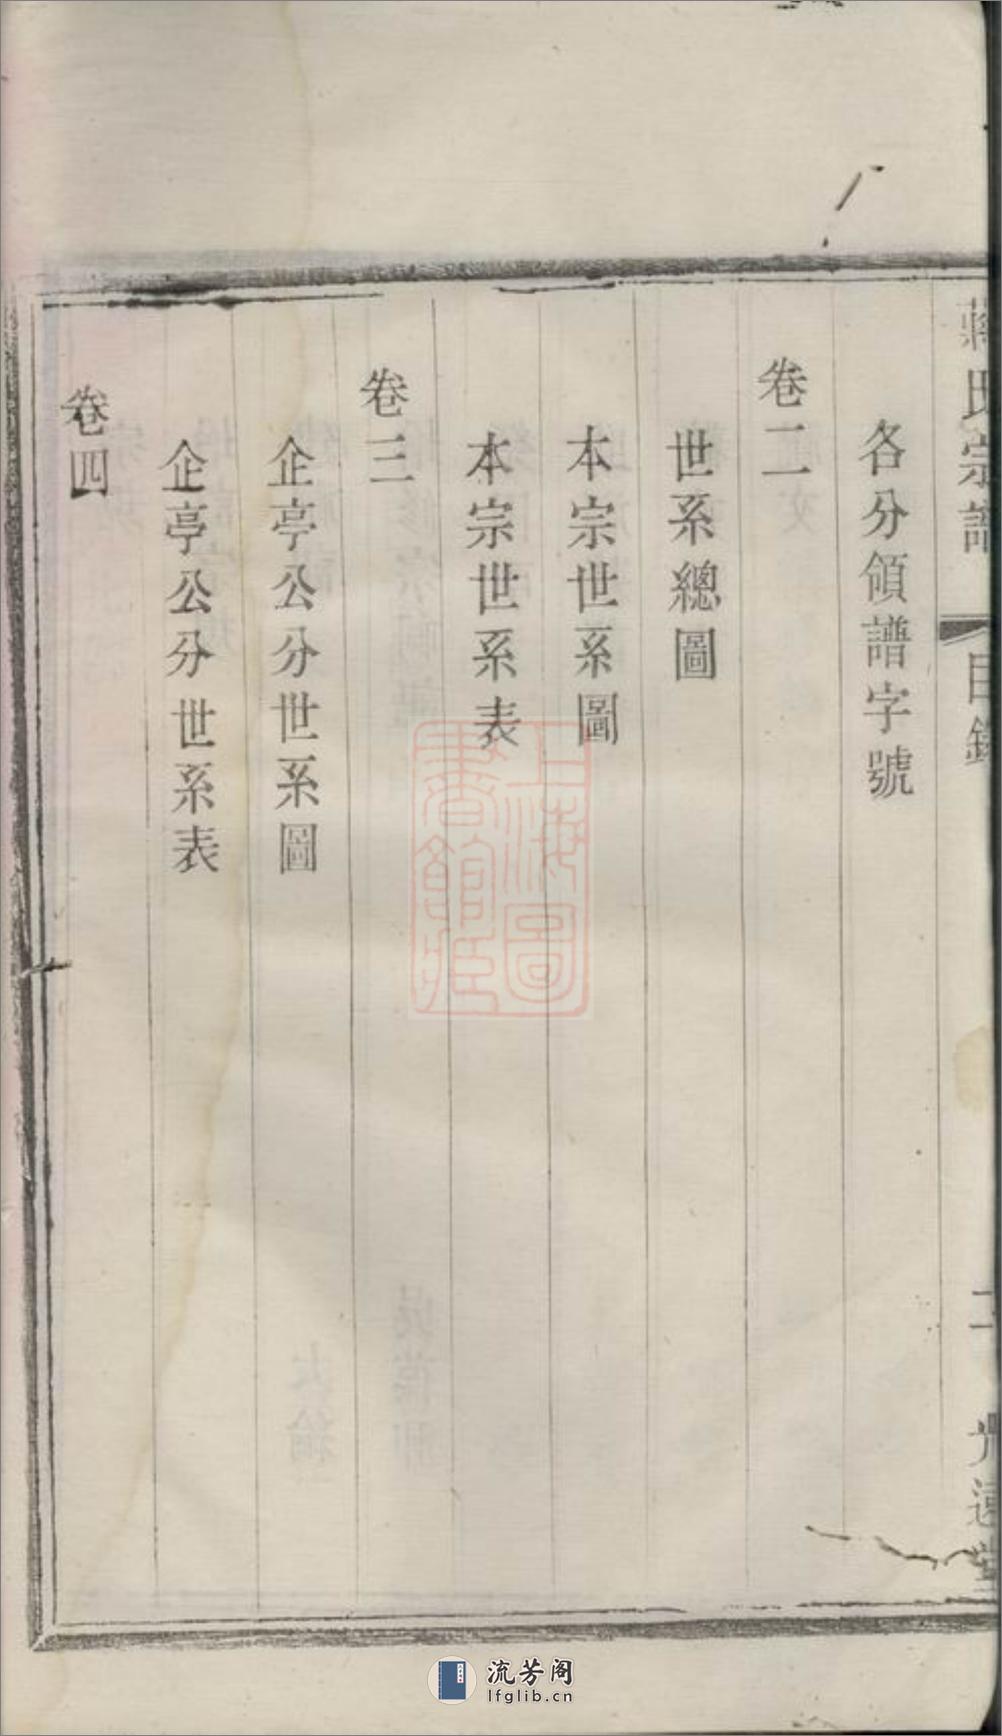 蔣氏宗譜
目錄
二
光遠堂
各分領譜字號
卷二
世系總圖
本宗世系圖
本宗世系表
卷三
企亭公分世系圖
企亭公分世系表
卷四
上海圖書館藏
流芳阁
lfglib.cn